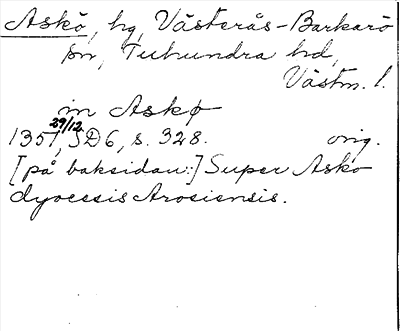 Askö, hg, Västerås-Barkarö
sn, Tuhundra hd,
Västm. l.
in Askø
29/12
1351, SD6, s. 328. orig.
[på baksidan:] Super Asko
dyocesis Arosiensis.